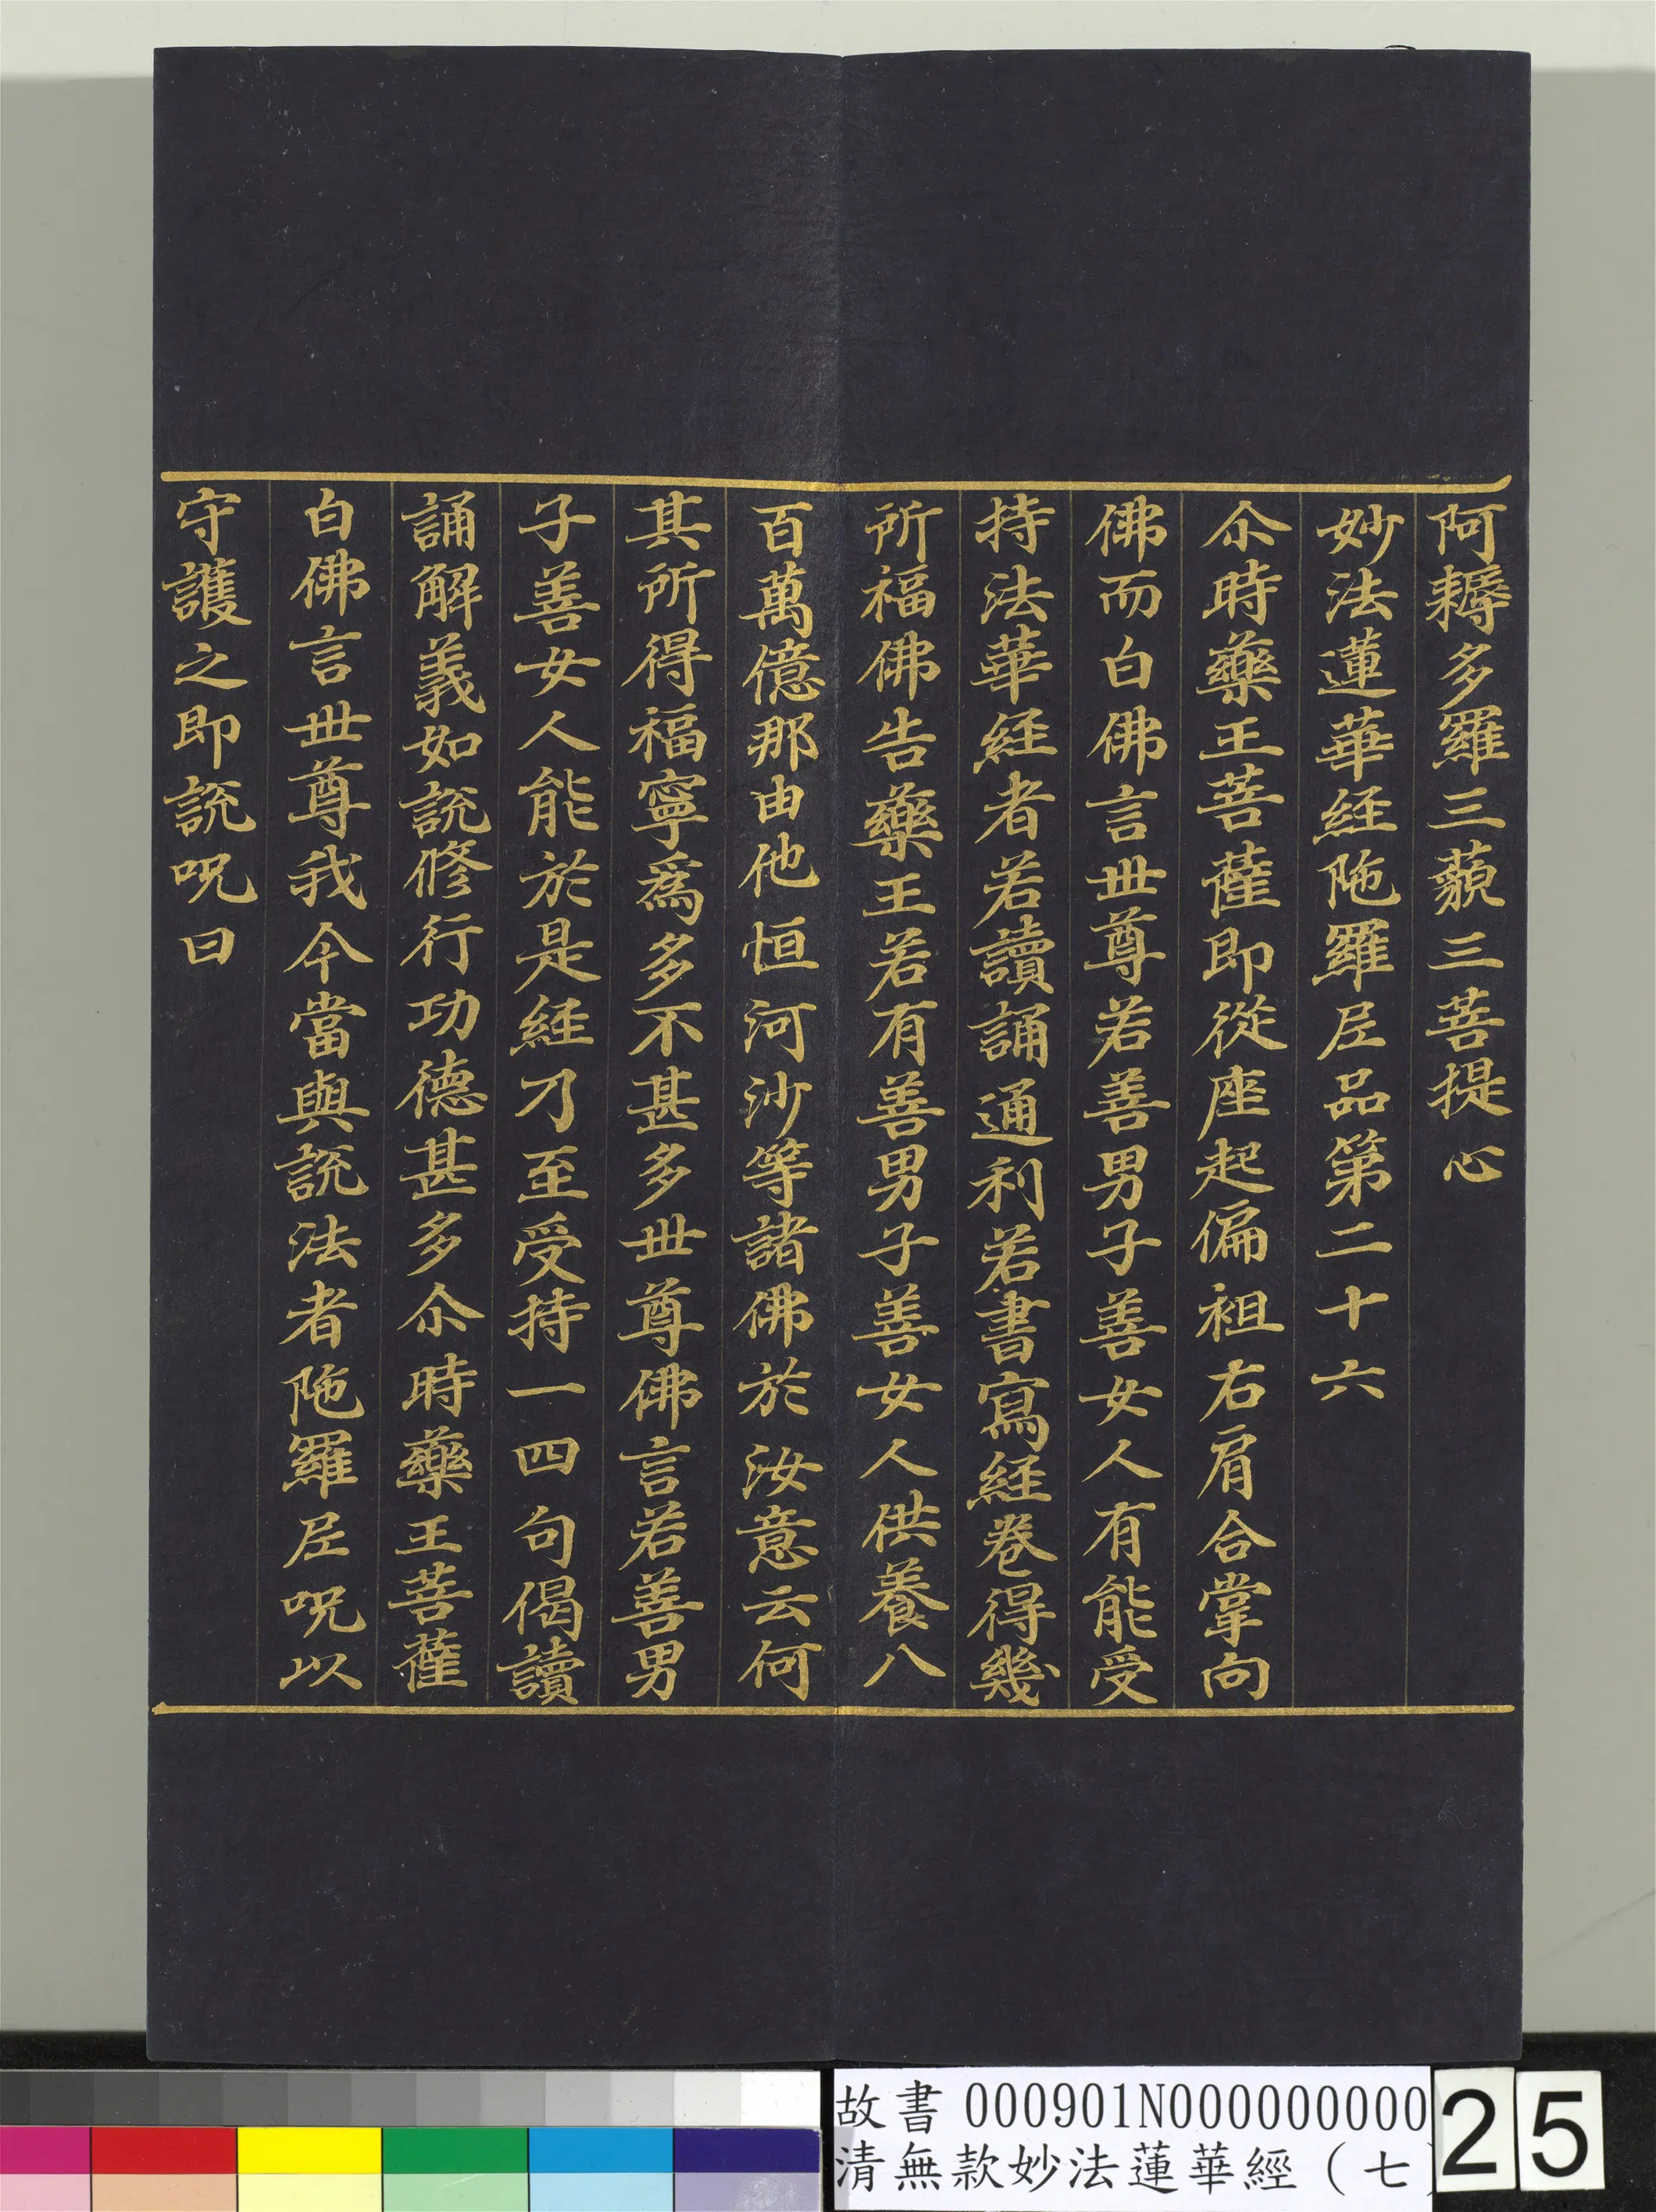 阿耨多羅三藐三菩提心
妙法蓮華經陁羅尼品第二十六
尒時藥王菩薩即從座起偏袒右肩合掌向
佛而白佛言世尊若善男子善女人有能受
持法華經者若讀誦通利若書寫經卷得幾
所福佛告藥王若有善男子善女人供養八
百萬億那由他恒河沙等諸佛於汝意云何
其所得福寧爲多不甚多世尊佛言若善男
子善女人能於是經乃至受持一四句偈讀
誦解義如說修行功德甚多尒時藥王菩薩
白佛言世尊我今當與說法者陁羅尼呪以
守護之即說呪曰
故書 000901N000000000
清無款妙法蓮華經（七
25